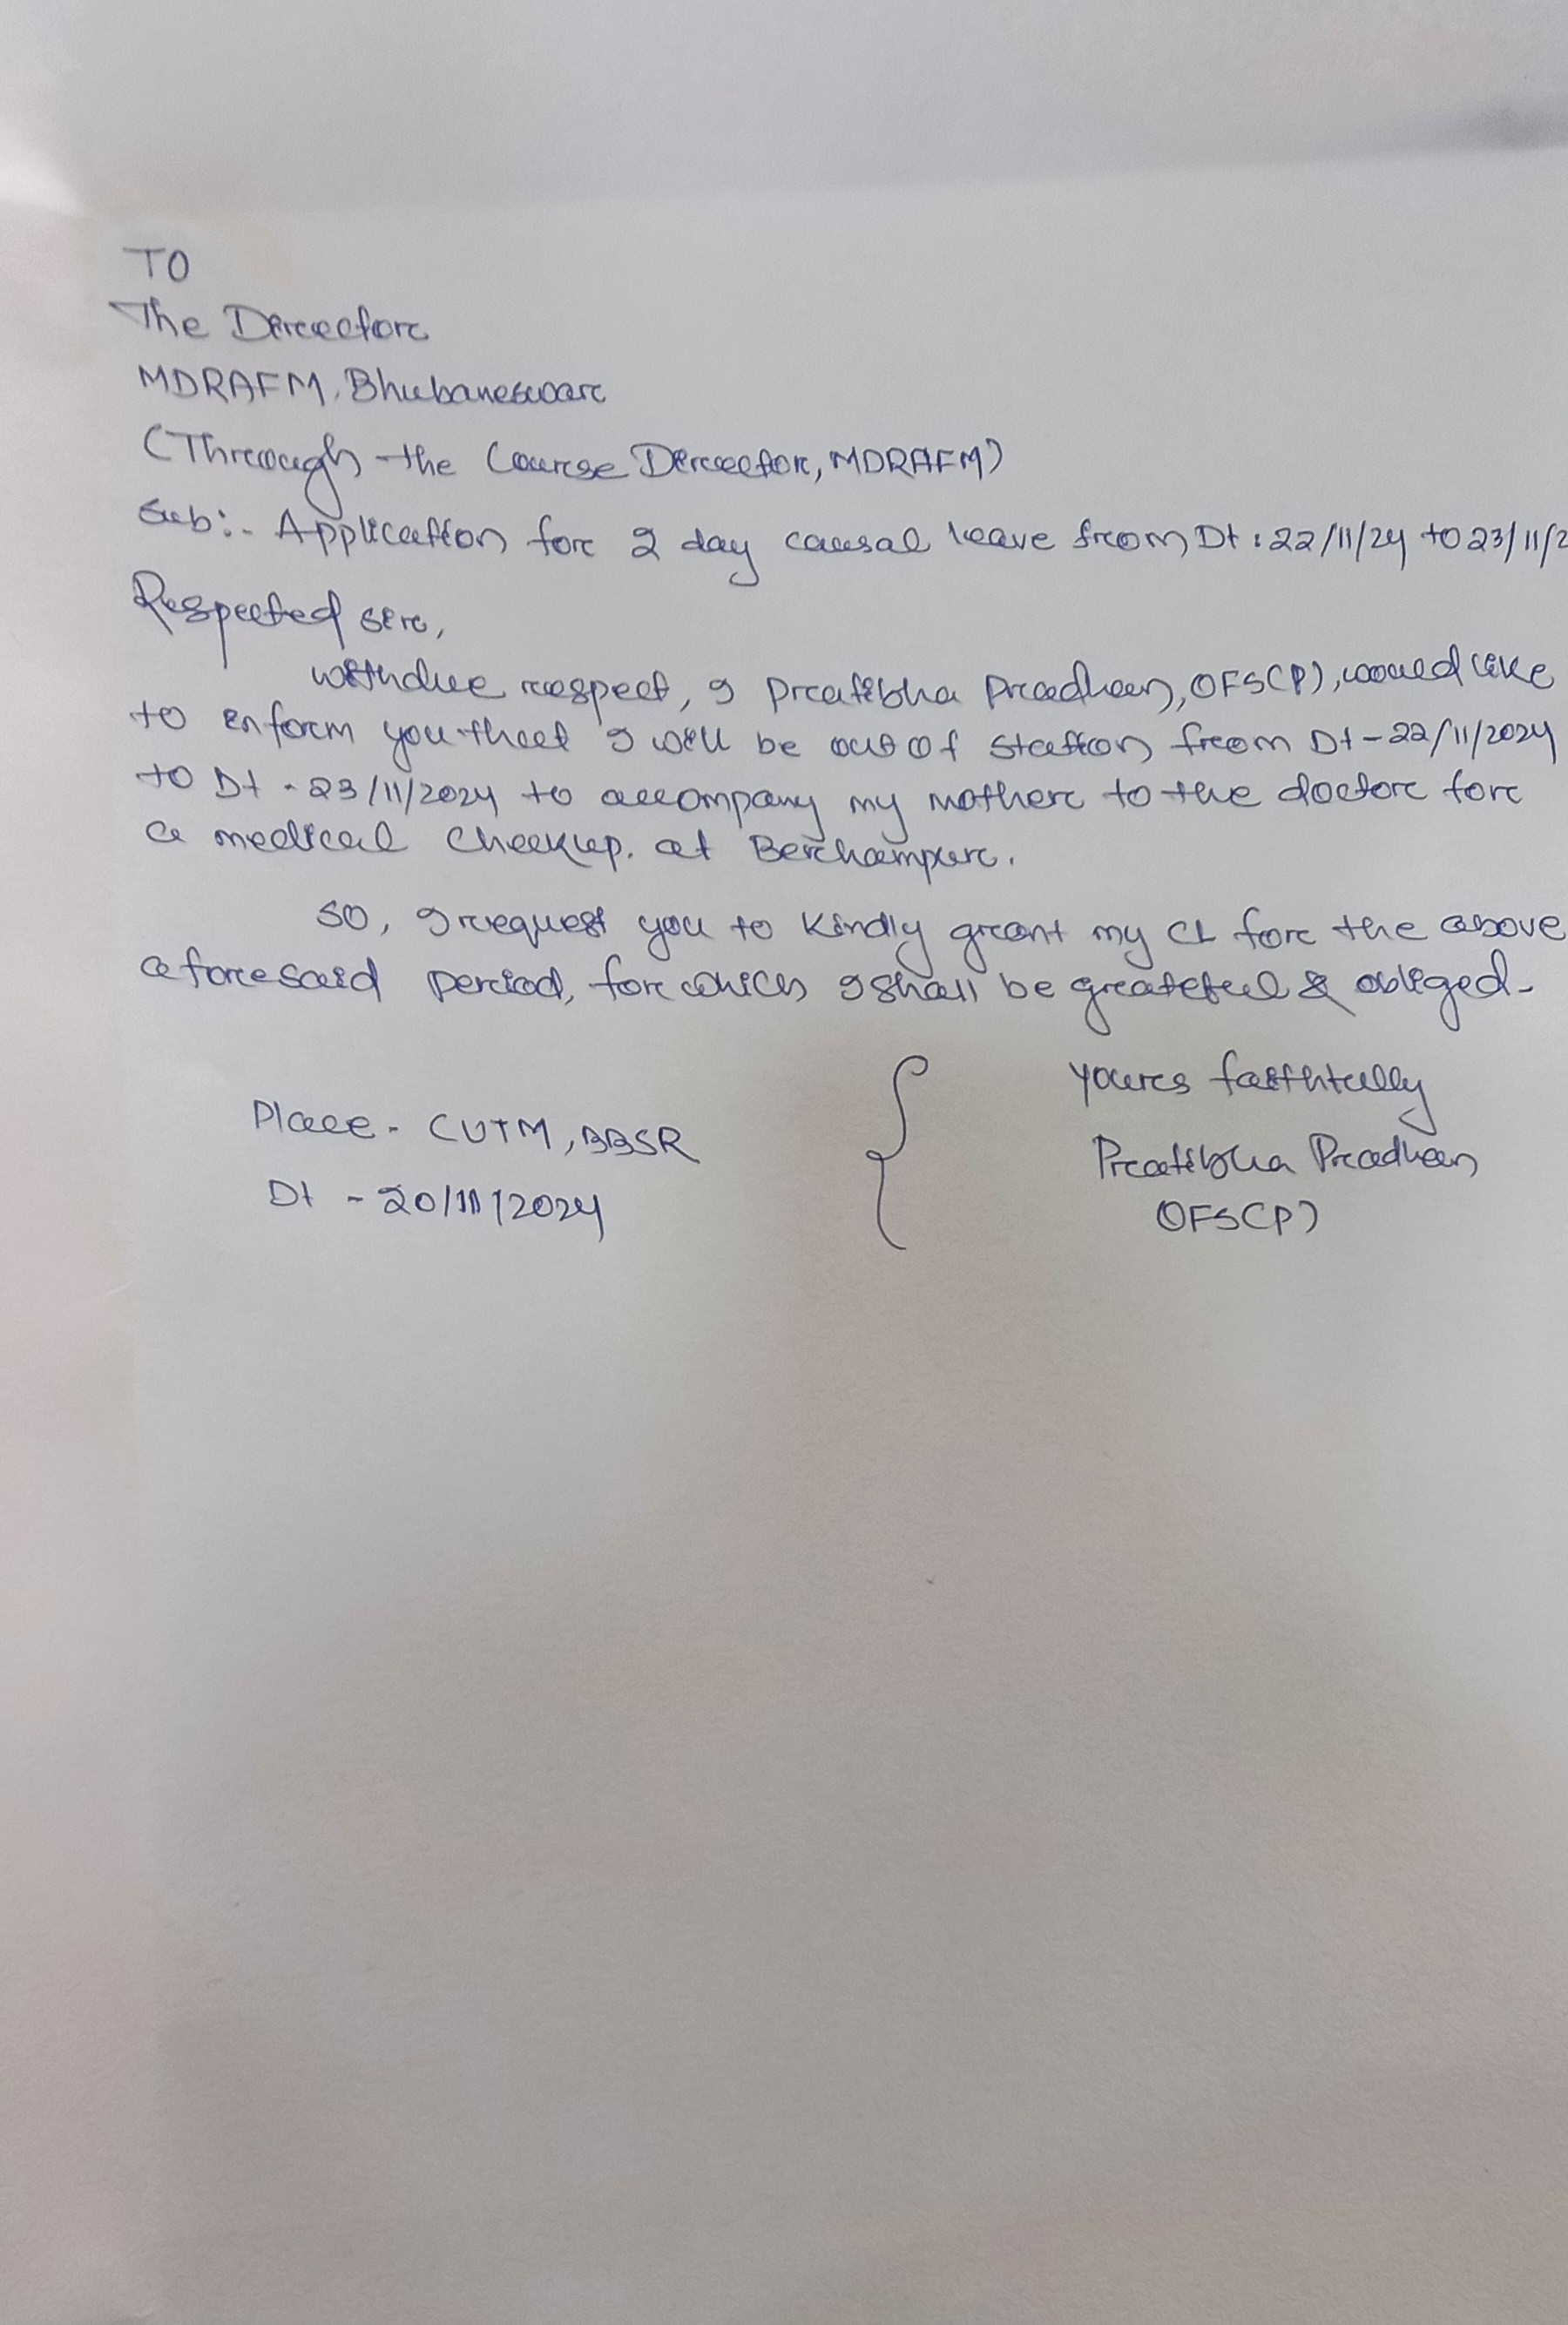 TO
The Director
MDRAFM, Bhubaneswar
(Through the Course Director, MDRAFM)
Sub:- Application for 2 day causal leave from Dt : 22/11/24 to 23/11/2
Respected sir,
with due respect, I Pratibha Pradhan, OFS(P), would like
to inform you that I will be out of station from Dt - 22/11/2024
to Dt - 23/11/2024 to accompany my mother to the doctor for
a medical checkup. at Berhampur.
So, I request you to kindly grant my CL for the above
aforesaid period, for which I shall be grateful & obliged-
Yours faithfully
Place - CUTM, BBSR
Pratibha Pradhan
Dt - 20/11/2024
OFS(P)